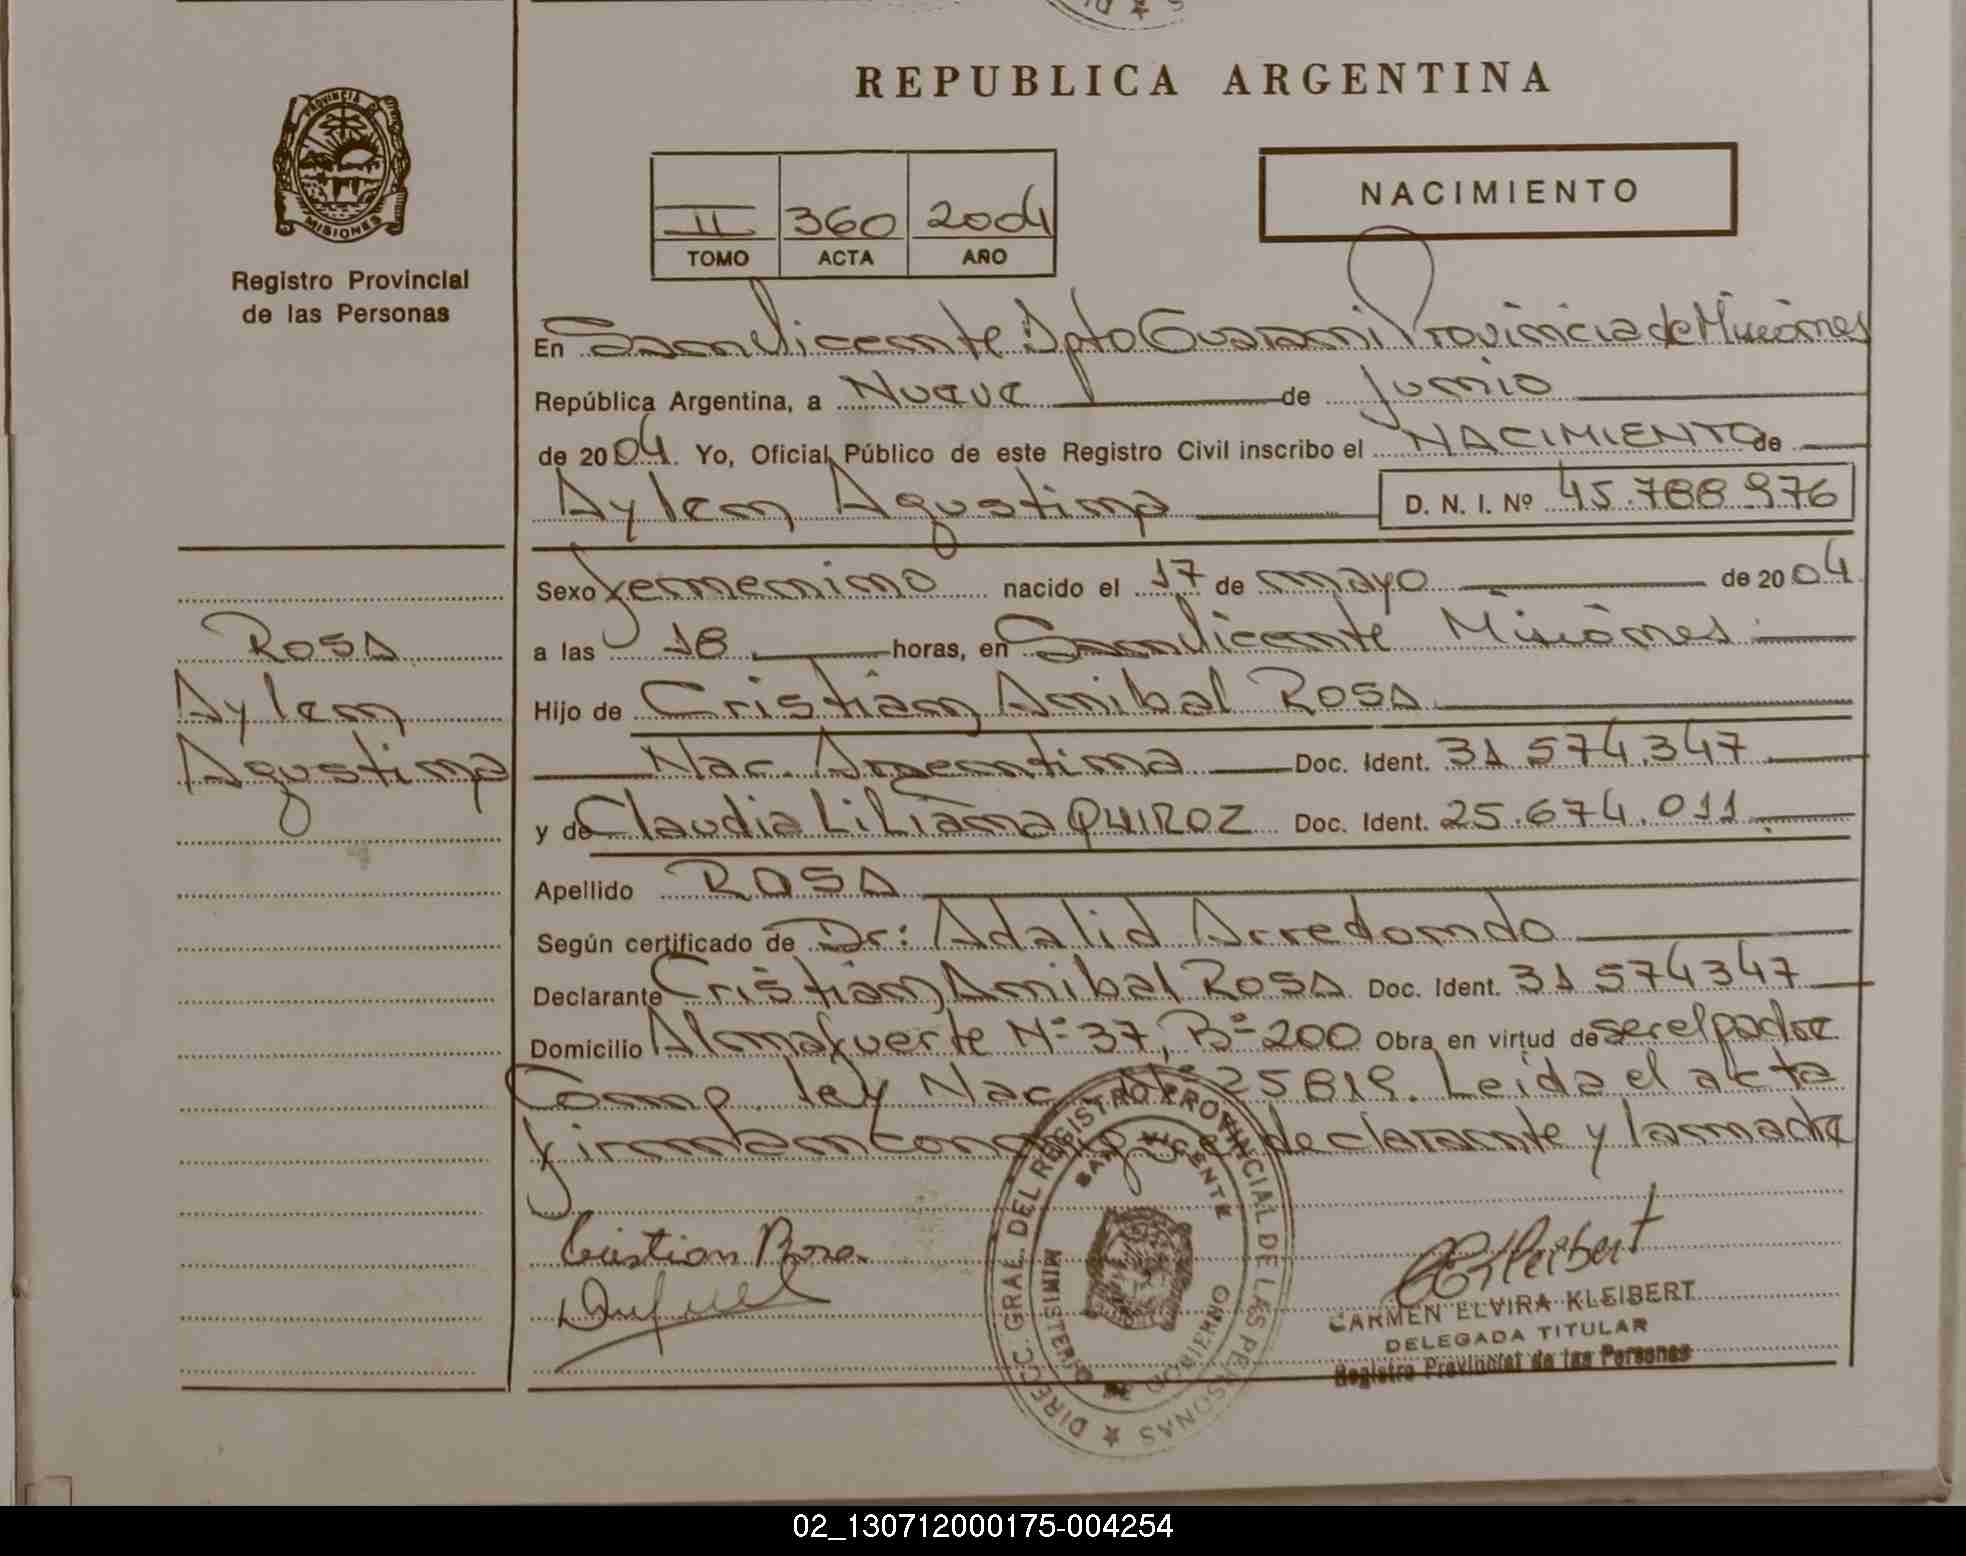 REPUBLICA ARGENTINA
PROVINCIA DE
MISIONES
Registro Provincial
de las Personas
NACIMIENTO
II 360 2004
TOMO ACTA AÑO
En San Vicente Dpto Guarani Provincia de Misiones
República Argentina, a Nueve de Junio
de 2004. Yo, Oficial Público de este Registro Civil inscribo el NACIMIENTO de
Aylen Agustina D. N. I. Nº 45.788.976
Sexo femenino nacido el 17 de mayo de 2004
a las 18 horas, en San Vicente Misiones
Hijo de Cristian Anibal ROSA
Nac. Argentina Doc. Ident. 31 574.347
y de Claudia Liliana QUIROZ Doc. Ident. 25.674.011
Apellido ROSA
Según certificado de Dr: Adalid Arredondo
Declarante Cristian Anibal ROSA Doc. Ident. 31 574347
Domicilio Almafuerte Nº 37, Bº 200 Obra en virtud de ser el padre
Comp. ley Nac Nº 25819. Leida el acta
firman conmigo el declarante y la madre
ROSA
Aylen
Agustina
Cristian Rosa
DIREC. GRAL. DEL REGISTRO PROVINCIAL DE LAS PERSONAS
SAN VICENTE
CARMEN ELVIRA KLEIBERT
DELEGADA TITULAR
Registro Provincial de las Personas
02_130712000175-004254